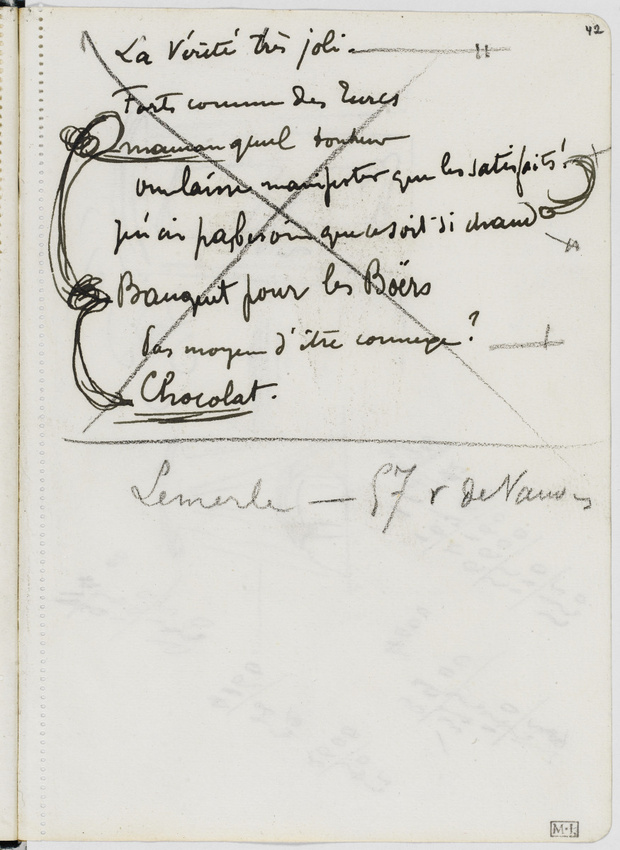 42
La Vérité très joli.
Forts comme des Turcs
maman quel bonheur
on laisse manifester que les satisfaits!
pas besoin que ce soit si chaud
Banquet pour les Boërs
Pas moyen d'être convenge?
Chocolat.
Lemerle — 57 r de Vanves
M·L